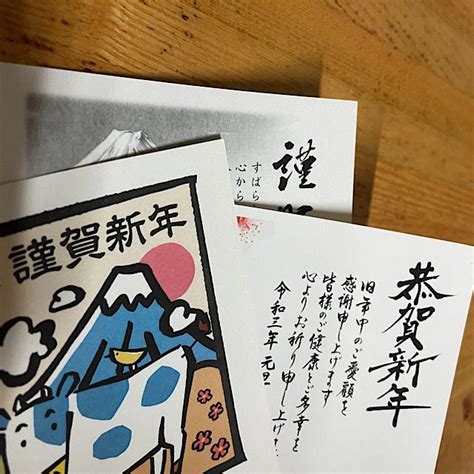 謹
すばら
心から
謹賀新年
恭賀新年
旧年中のご愛顧を
感謝申し上げます
皆様のご健康とご多幸を
心よりお祈り申し上げ
令和三年 元旦